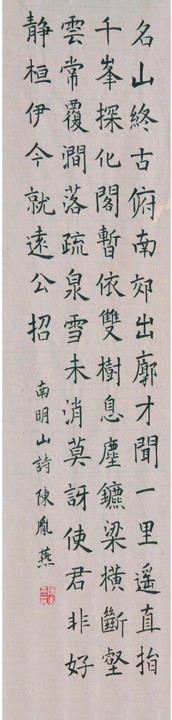 名山終古俯南郊出廓才聞一里遥直指
千峯探化閣暫依雙樹息塵鑣梁横斷壑
雲常覆澗落疏泉雪未消莫訝使君非好
静桓伊今就遠公招
南明山詩陳胤燕